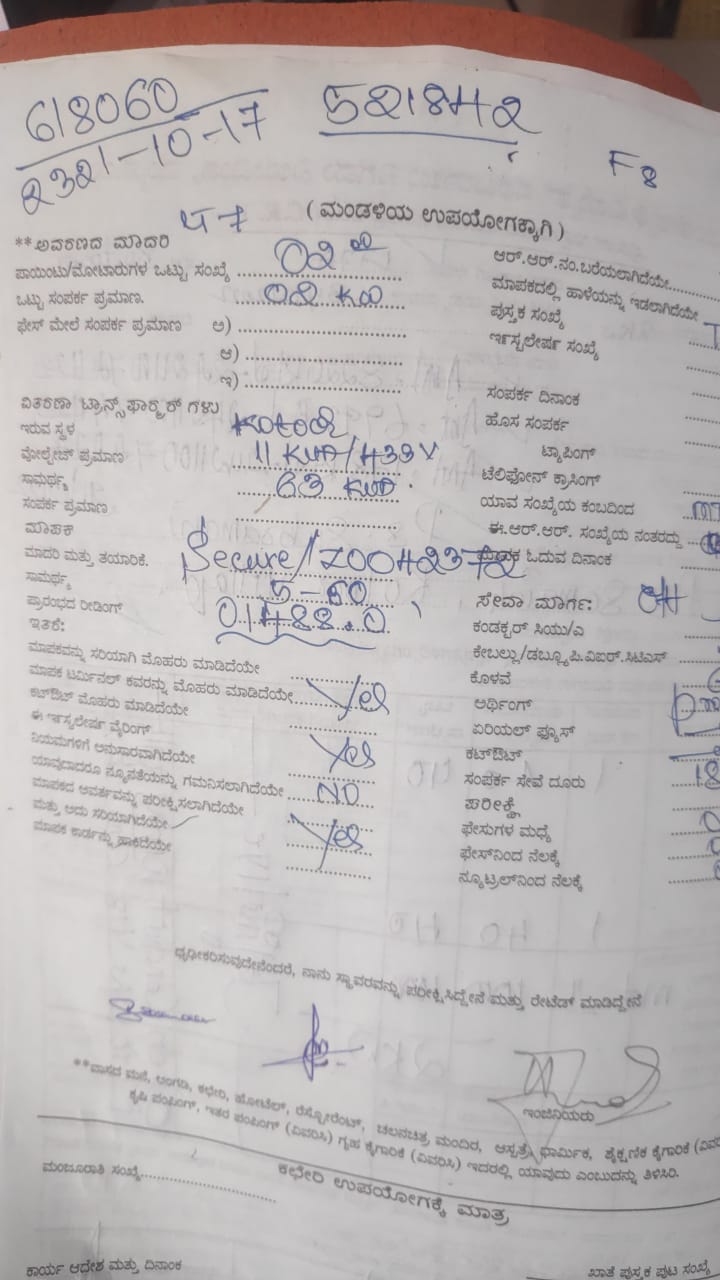 618060
2321-10-17
521842
F8
(ಮಂಡಳಿಯ ಉಪಯೋಗಕ್ಕಾಗಿ)
**ಆವರಣದ ಮಾದರಿ
ಪಾಯಿಂಟು/ಮೋಟಾರುಗಳ ಒಟ್ಟು ಸಂಖ್ಯೆ 02
ಒಟ್ಟು ಸಂಪರ್ಕ ಪ್ರಮಾಣ. 02 KW
ಫೇಸ್ ಮೇಲೆ ಸಂಪರ್ಕ ಪ್ರಮಾಣ ಅ)
ಆ)
ಇ)
ವಿತರಣಾ ಟ್ರಾನ್ಸ್‌ಫಾರ್ಮರ್ ಗಳು
ಇರುವ ಸ್ಥಳ
ವೋಲ್ಟೇಜ್ ಪ್ರಮಾಣ 11 KVA/433V
ಸಾಮರ್ಥ್ಯ 63 KVA
ಸಂಪರ್ಕ ಪ್ರಮಾಣ
ಮಾಪಕ
ಮಾದರಿ ಮತ್ತು ತಯಾರಿಕೆ. Secure/Z0042372
ಸಾಮರ್ಥ್ಯ 5-60
ಪ್ರಾರಂಭದ ರೀಡಿಂಗ್ 01488.0
ಇತರೆ:
ಮಾಪಕವನ್ನು ಸರಿಯಾಗಿ ಮೊಹರು ಮಾಡಿದೆಯೇ
ಮಾಪಕ ಟರ್ಮಿನಲ್ ಕವರನ್ನು ಮೊಹರು ಮಾಡಿದೆಯೇ Yes
ಕಟ್‌ಔಟ್ ಮೊಹರು ಮಾಡಿದೆಯೇ
ಈ ಇನ್ಸ್ಟಲೇಷನ್ ವೈರಿಂಗ್
ನಿಯಮಗಳಿಗೆ ಅನುಸಾರವಾಗಿದೆಯೇ Yes
ಯಾವುದಾದರೂ ನ್ಯೂನತೆಯನ್ನು ಗಮನಿಸಲಾಗಿದೆಯೇ NO
ಮಾಪಕದ ಆವರ್ತವನ್ನು ಪರೀಕ್ಷಿಸಲಾಗಿದೆಯೇ
ಮತ್ತು ಅದು ಸರಿಯಾಗಿದೆಯೇ Yes
ಮಾಪಕ ಕಾರ್ಡನ್ನು ಹಾಕಿದೆಯೇ
ಆರ್.ಆರ್.ನಂ.ಬರೆಯಲಾಗಿದೆಯೇ
ಮಾಪಕದಲ್ಲಿ ಹಾಳೆಯನ್ನು ಇಡಲಾಗಿದೆಯೇ
ಪುಸ್ತಕ ಸಂಖ್ಯೆ
ಇನ್ಸ್ಟಲೇಷನ್ ಸಂಖ್ಯೆ
ಸಂಪರ್ಕ ದಿನಾಂಕ
ಹೊಸ ಸಂಪರ್ಕ
ಟ್ಯಾಪಿಂಗ್
ಟೆಲಿಫೋನ್ ಕ್ರಾಸಿಂಗ್
ಯಾವ ಸಂಖ್ಯೆಯ ಕಂಬದಿಂದ
ಈ.ಆರ್.ಆರ್. ಸಂಖ್ಯೆಯ ನಂತರದ್ದು
ಮಾಪಕ ಓದುವ ದಿನಾಂಕ
ಸೇವಾ ಮಾರ್ಗ: OH
ಕಂಡಕ್ಟರ್ ಸಿಯು/ಎ
ಕೇಬಲ್ಲು/ಡಬ್ಲ್ಯೂ.ಪಿ.ವಿಐರ್.ಸಿಟಿಎಸ್
ಕೊಳವೆ
ಅರ್ಥಿಂಗ್
ಏರಿಯಲ್ ಫ್ಯೂಸ್
ಕಟ್‌ಔಟ್
ಸಂಪರ್ಕ ಸೇವೆ ದೂರು 18
ಪರೀಕ್ಷೆ
ಫೇಸುಗಳ ಮಧ್ಯೆ
ಫೇಸ್‌ನಿಂದ ನೆಲಕ್ಕೆ
ನ್ಯೂಟ್ರಲ್‌ನಿಂದ ನೆಲಕ್ಕೆ
ಧೃಢೀಕರಿಸುವುದೇನೆಂದರೆ, ನಾನು ಸ್ಥಾವರವನ್ನು ಪರೀಕ್ಷಿಸಿದ್ದೇನೆ ಮತ್ತು ರೇಟೆಡ್ ಮಾಡಿದ್ದೇನೆ
ಇಂಜಿನಿಯರು
**ವಾಸದ ಮನೆ, ಅಂಗಡಿ, ಕಛೇರಿ, ಹೋಟೆಲ್, ರೆಸ್ಟೋರೆಂಟ್, ಚಲನಚಿತ್ರ ಮಂದಿರ, ಆಸ್ಪತ್ರೆ ಧಾರ್ಮಿಕ, ಶೈಕ್ಷಣಿಕ ಕೈಗಾರಿಕೆ
ಕೃಷಿ ಪಂಪಿಂಗ್, ಇತರ ಪಂಪಿಂಗ್ (ವಿವರಿಸಿ) ಗೃಹ ಕೈಗಾರಿಕೆ (ವಿವರಿಸಿ) ಇದರಲ್ಲಿ ಯಾವುದು ಎಂಬುದನ್ನು ತಿಳಿಸಿರಿ.
ಕಛೇರಿ ಉಪಯೋಗಕ್ಕೆ ಮಾತ್ರ
ಮಂಜೂರಾತಿ ಸಂಖ್ಯೆ
ಕಾರ್ಯ ಆದೇಶ ಮತ್ತು ದಿನಾಂಕ
ಖಾತೆ ಪುಸ್ತಕ ಪುಟ ಸಂಖ್ಯೆ